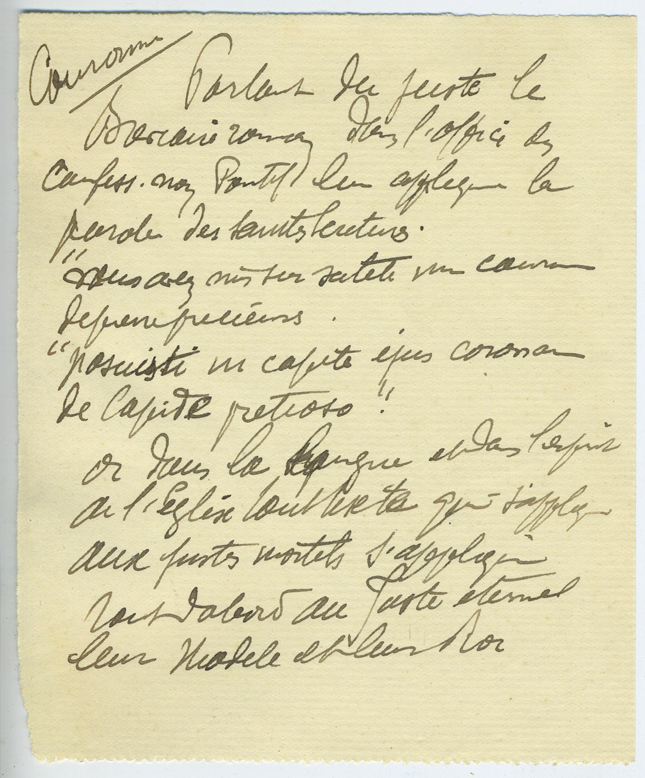 Couronne
Parlant du juste le
Breviaire romain dans l'office des
Confess. non Pontif leur applique la
parole des saintes lectures.
"Vous avez mis sur sa tête une couronne
de pierre précieuse.
"posuisti in capite ejus coronam
de lapide pretioso".
or dans la langue et dans l'esprit
de l'Eglise tout texte qui s'applique
aux justes mortels s'applique
tout d'abord au Juste éternel
leur Modele et leur Roi